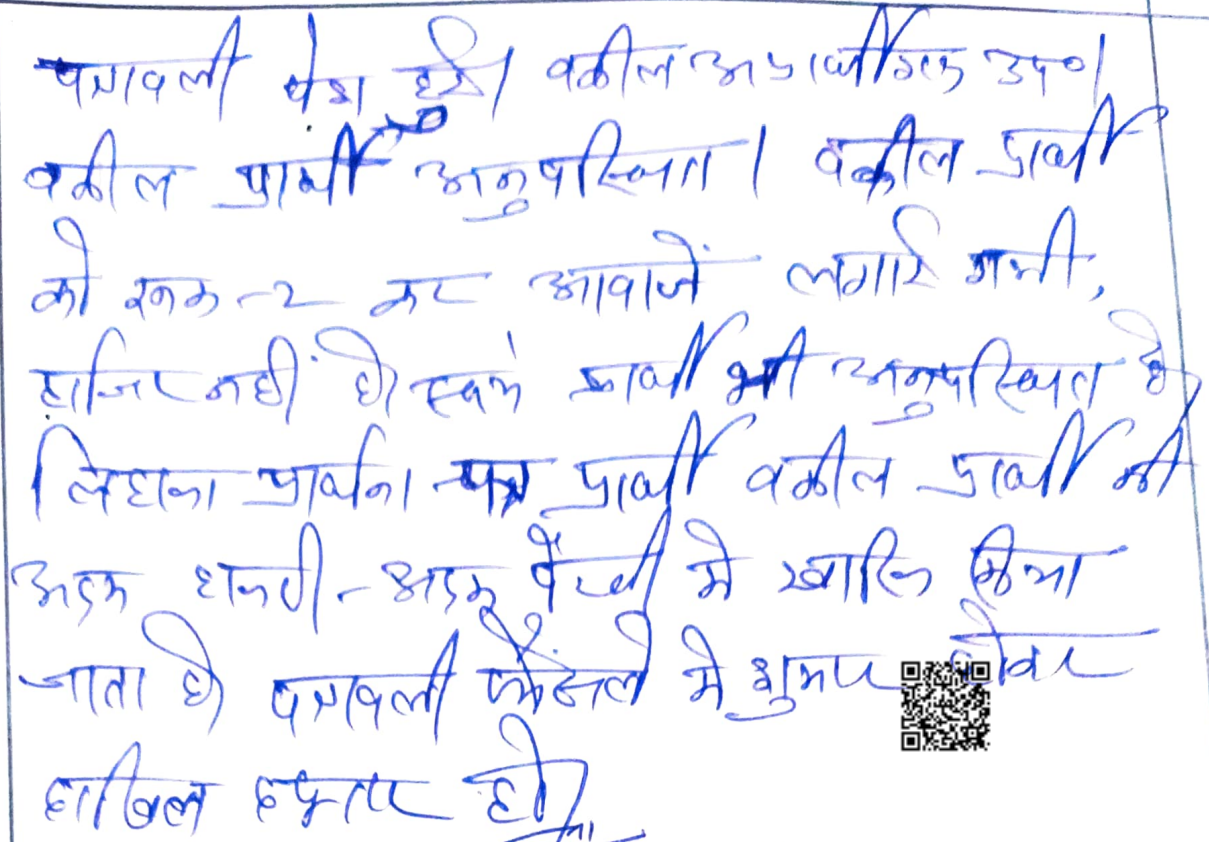 पत्रावली पेश हुई। वकील अप्रार्थीगण उप०।
वकील प्रार्थी अनुपस्थित। वकील प्रार्थी
को रूक-२ कर आवाजें लगाई गयी,
हाजिर नहीं है। स्वयं प्रार्थी भी अनुपस्थित है।
लिहाजा प्रार्थना पत्र प्रार्थी वकील प्रार्थी की
अदम हाजरी-अदम पैरवी में खारिज किया
जाता है। पत्रावली फैसले में शुमार होकर
दाखिल दफ्तर हो।